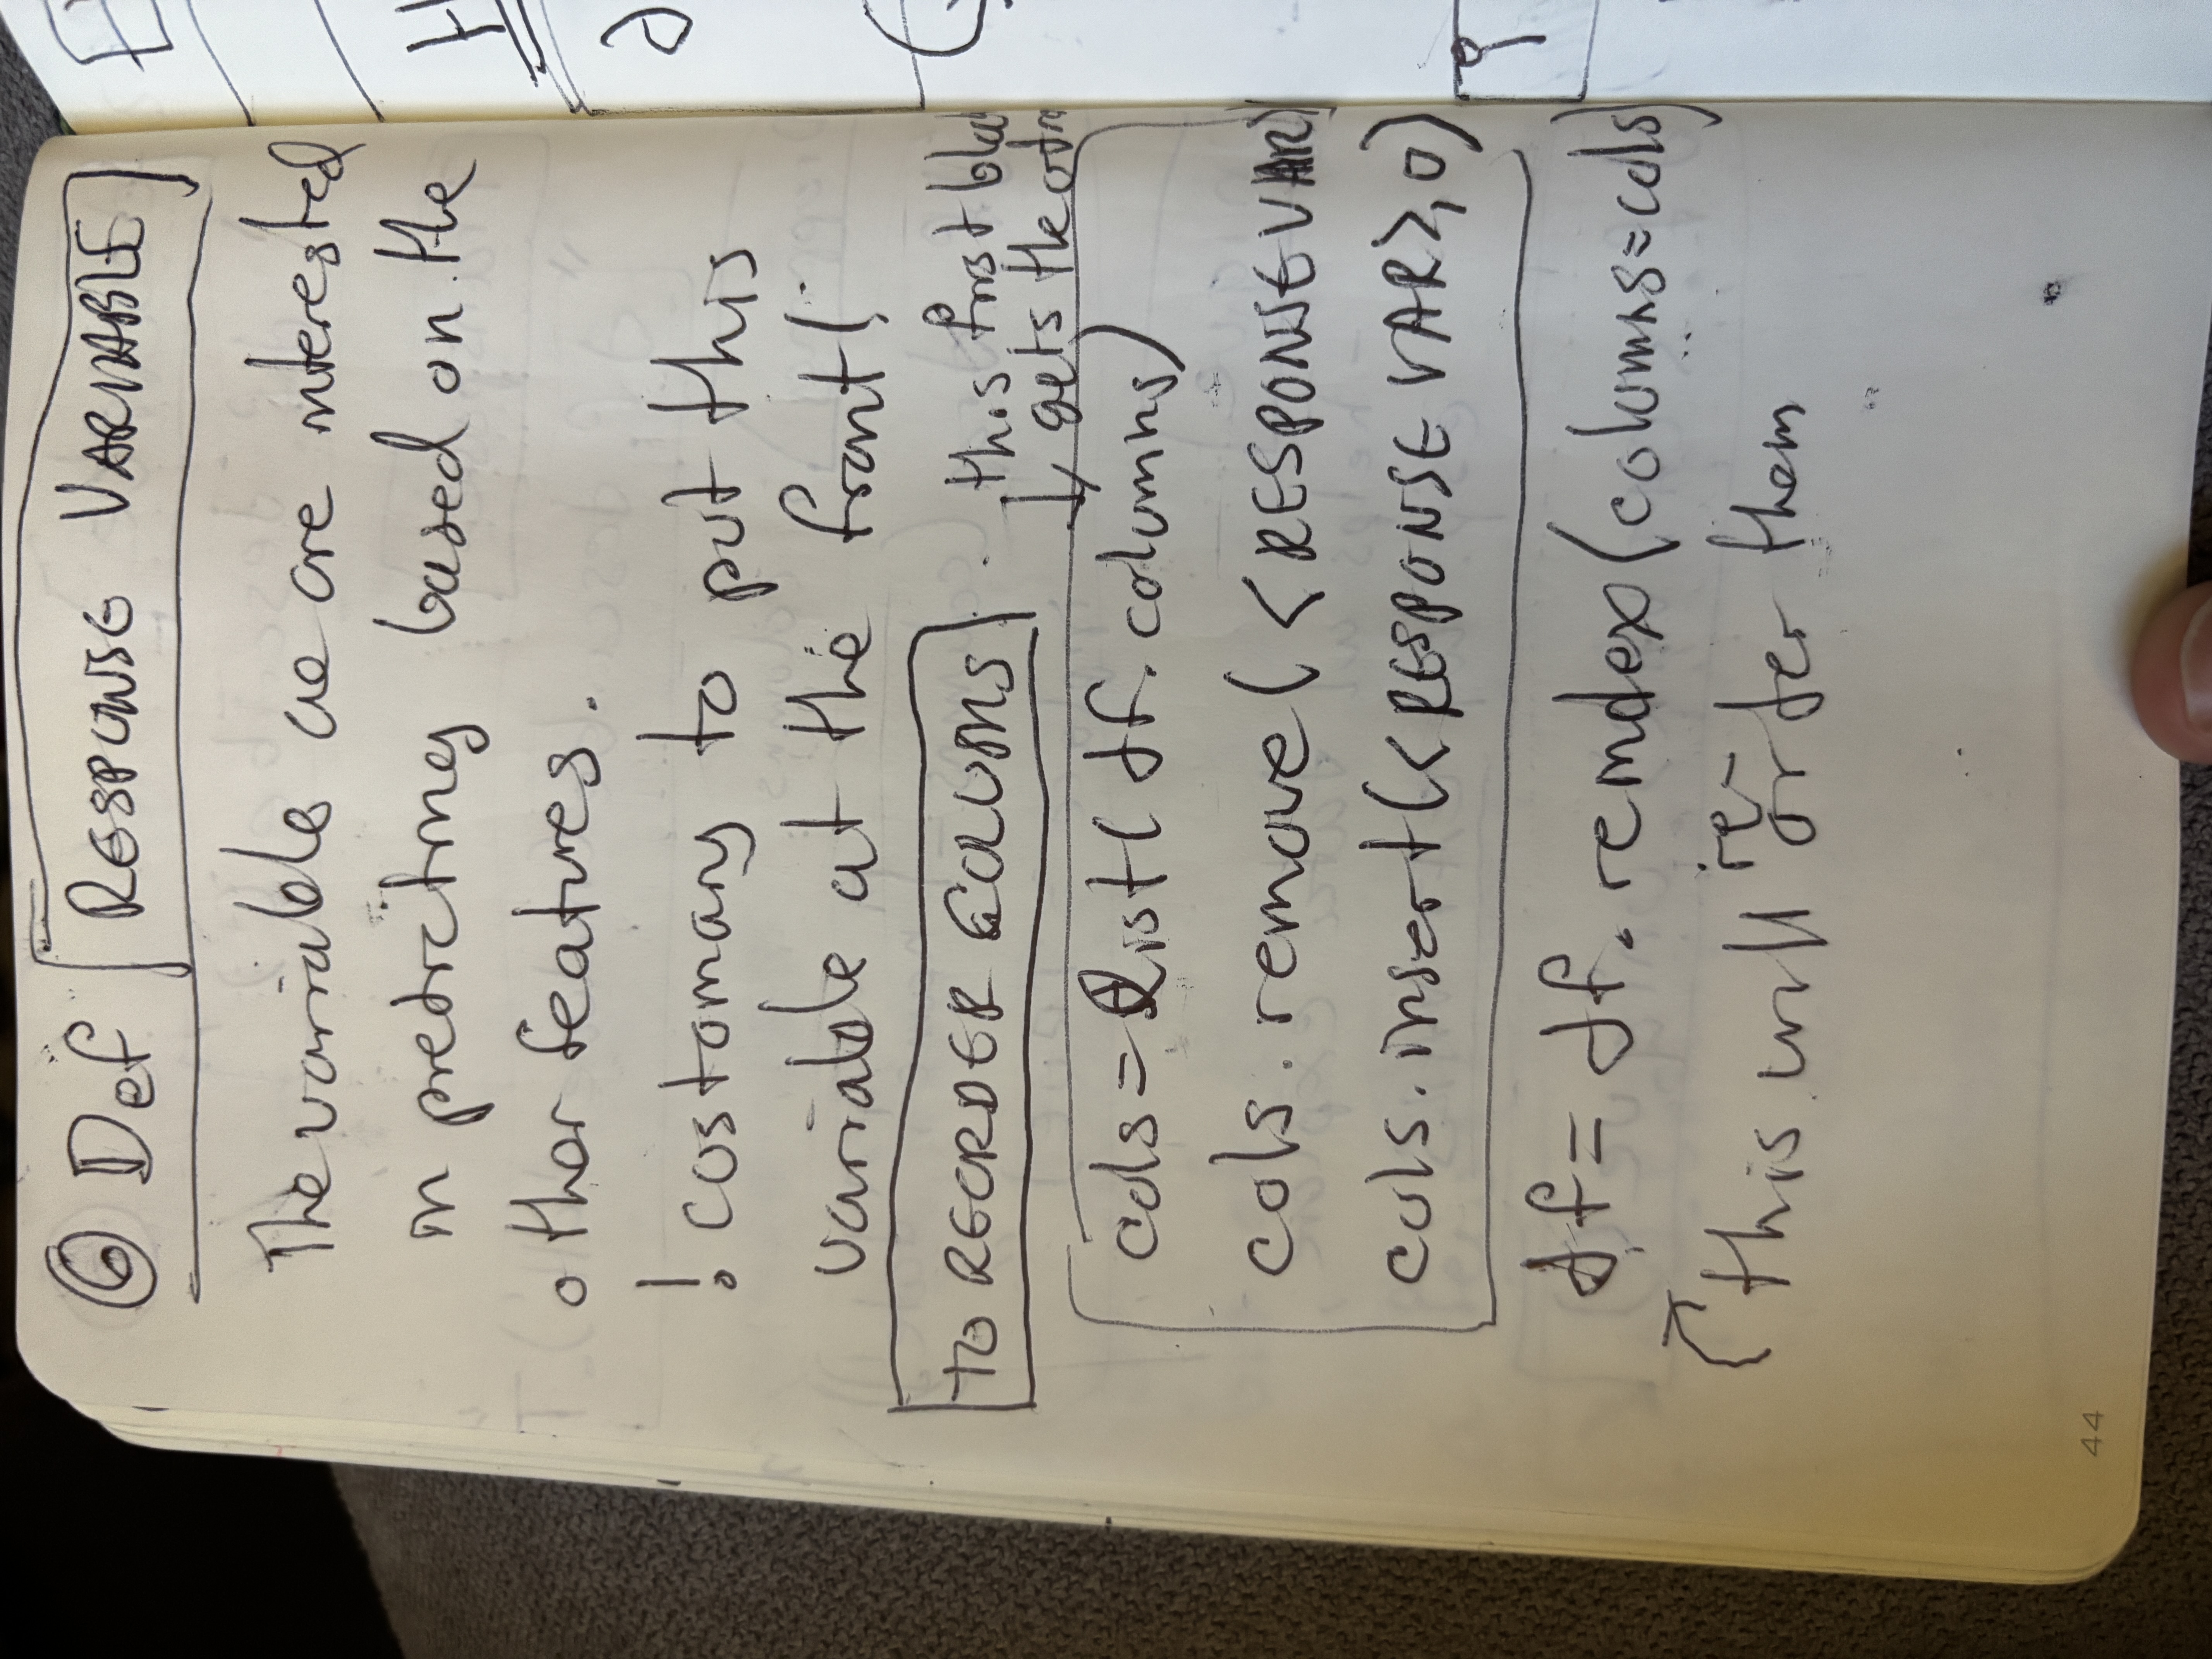 6 Def RESPONSE VARIABLE
The variable we are interested
in predicting based on the
other features.
! costomary to put this
variable at the front!
TO REORDER COLUMS
this first
gets the
cols = list( df. columns)
cols. remove ( < RESPONSE VAR>
cols. insert(< RESPONSE VAR>, 0)
df = df. reindex (columns=cols)
this will re-order them
44